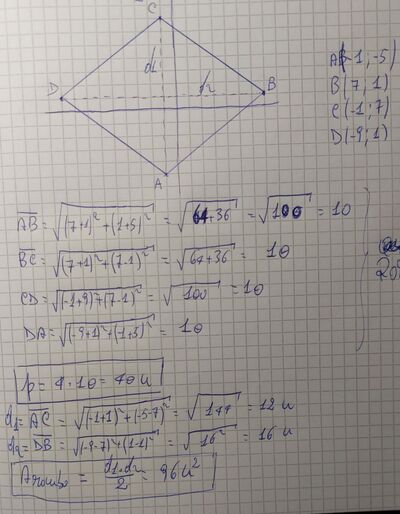 C
d1
D
d2
B
A
A(-1;-5)
B(7;1)
C(-1;7)
D(-9;1)
AB = √(7+1)²+(1+5)² = √64+36 = √100 = 10
BC = √(7+1)²+(7-1)² = √64+36 = 10
CD = √(-1+9)²+(7-1)² = √100 = 10
DA = √(-9+1)²+(-1+5)² = 10
p = 4·10 = 40 u
d1 = AC = √(-1+1)²+(-5-7)² = √144 = 12 u
d2 = DB = √(-9-7)²+(1-1)² = √16² = 16 u
Arombo = d1·d2/2 = 96 u²